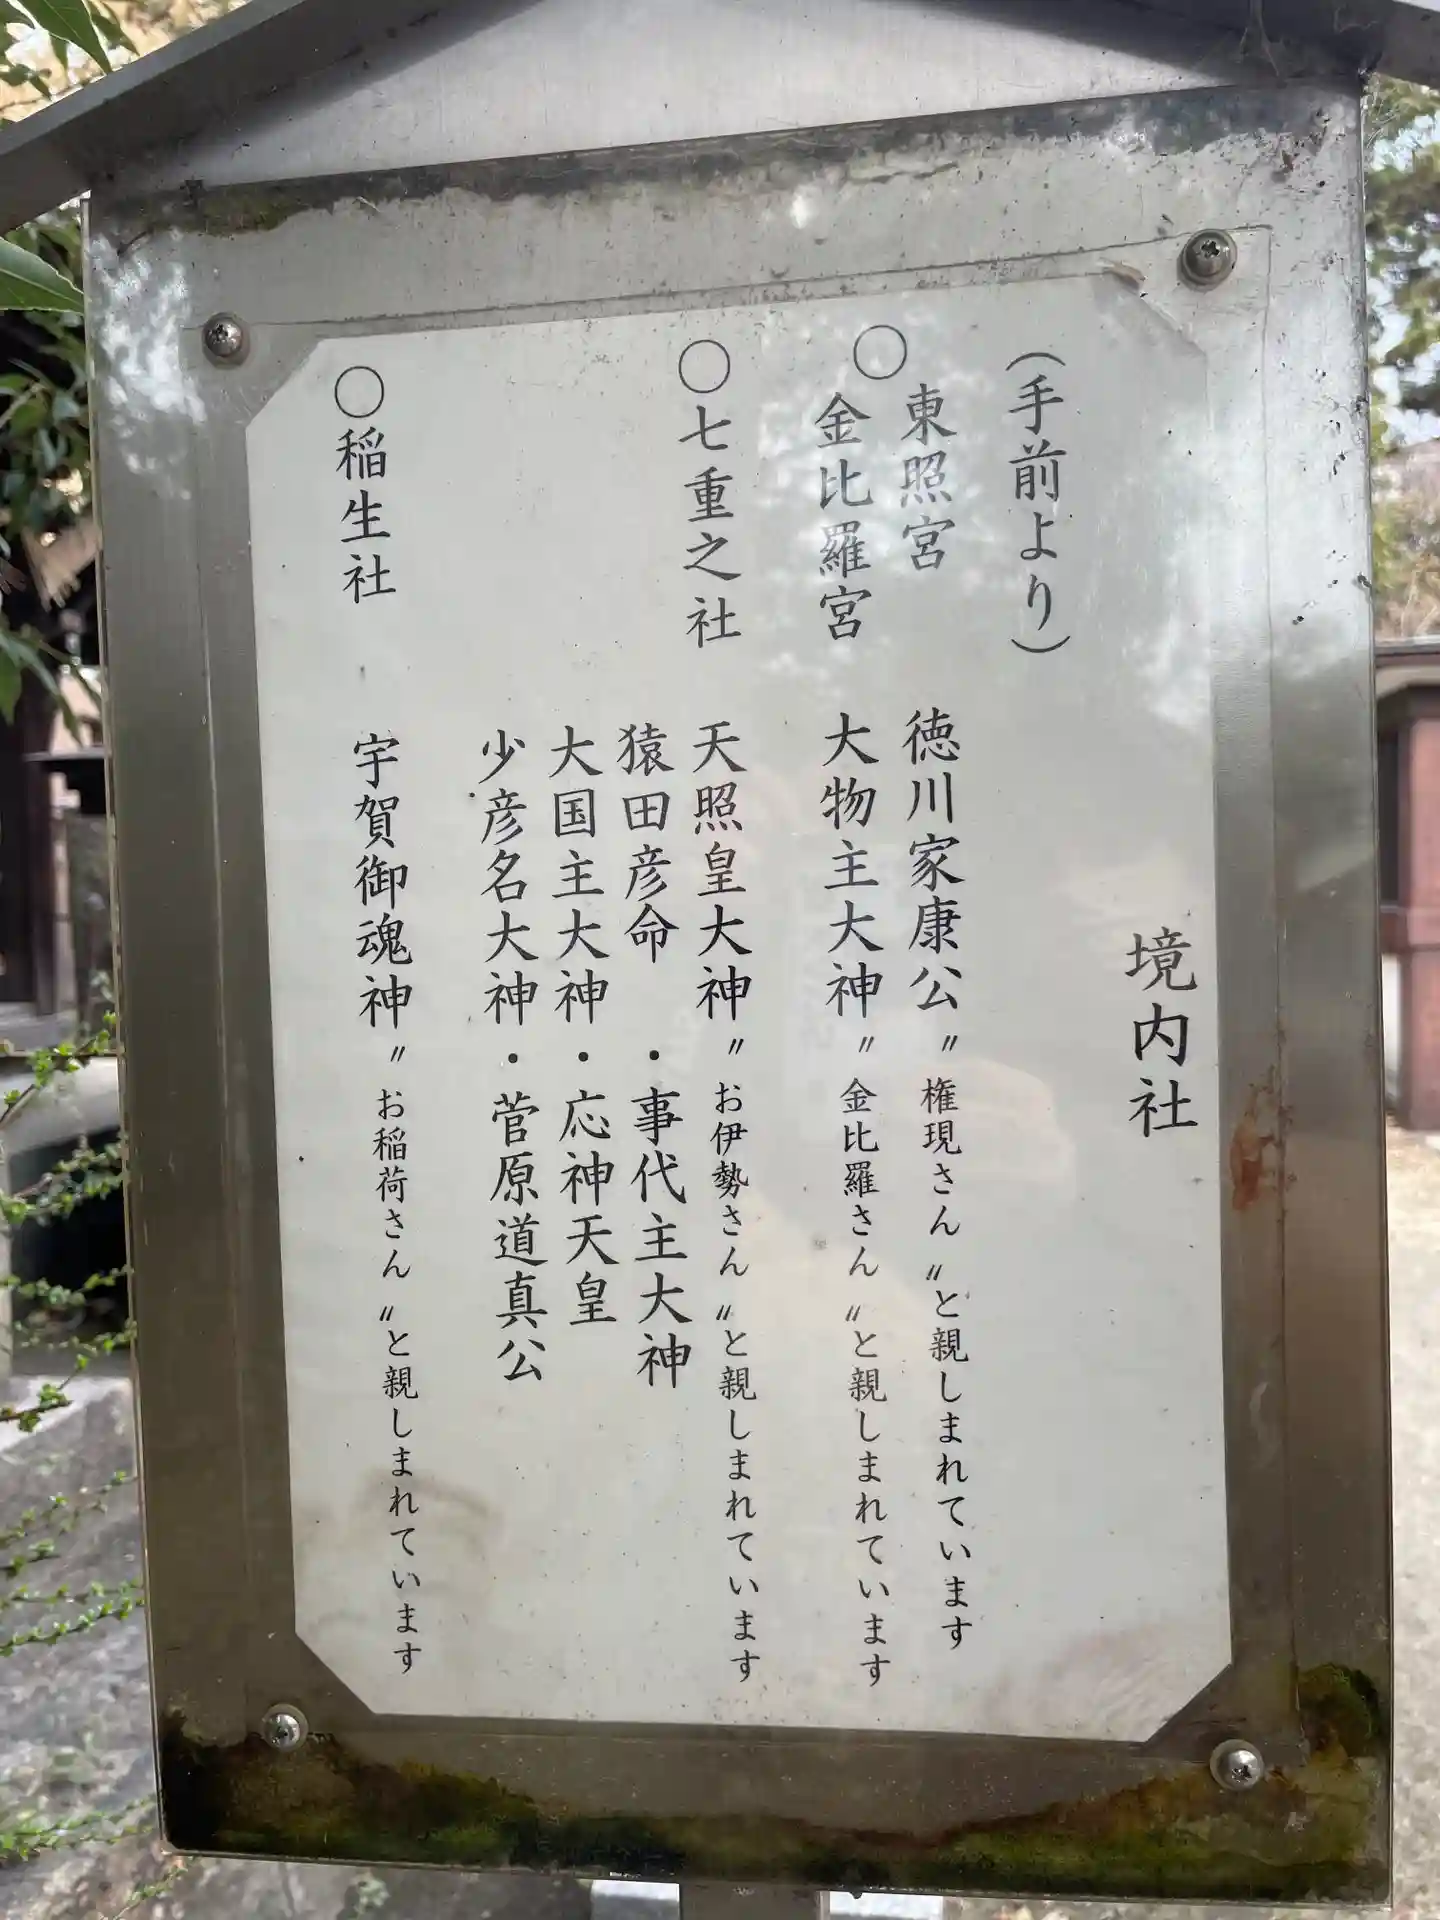 境内社
(手前より)
○
東照宮 徳川家康公〝権現さん〟と親しまれています
金比羅宮 大物主大神〝金比羅さん〟と親しまれています
○七重之社 天照皇大神〝お伊勢さん〟と親しまれています
猿田彦命・事代主大神
大国主大神・応神天皇
少彦名大神・菅原道真公
○稲生社 宇賀御魂神〝お稲荷さん〟と親しまれています